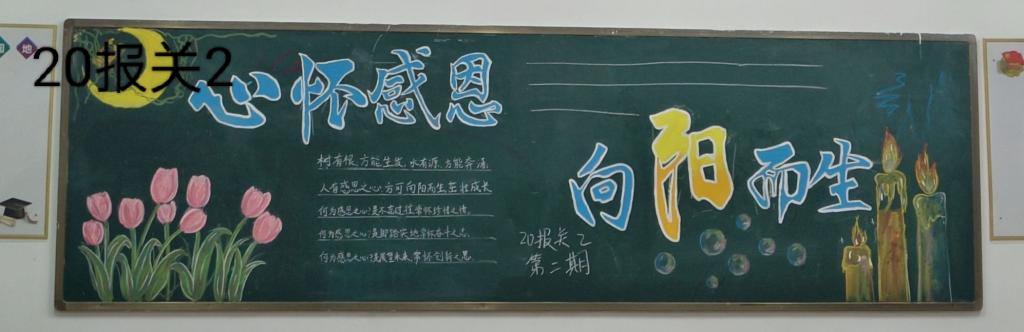 20报关2
心怀感恩
树有根,方能生发,水有源,方能奔涌,
人有感恩之心,方可向阳而生茁壮成长
何为感恩之心?是不忘过往常怀珍惜之情。
何为感恩之心?是脚踏实地常怀奋斗之志。
何为感恩之心?是展望未来,常怀创新之思.
向阳而生
20报关2
第二期